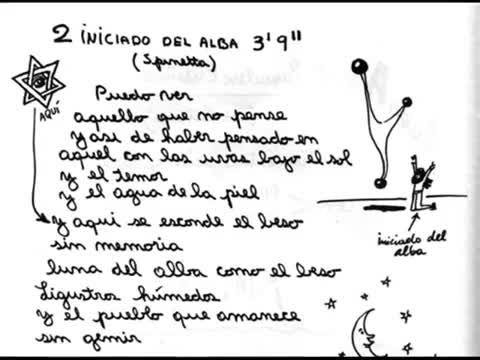 2 INICIADO DEL ALBA 3' 9"
(Spinetta)
AQUÍ
Puedo ver
aquello que no pense
y asi de haber pensado en
aquel con las uvas bajo el sol
y el temor
y el agua de la piel
y aqui se esconde el beso
sin memoria
luna del alba como el beso
Ligustros húmedos
y el pueblo que amanece
sin gemir
iniciado del
alba